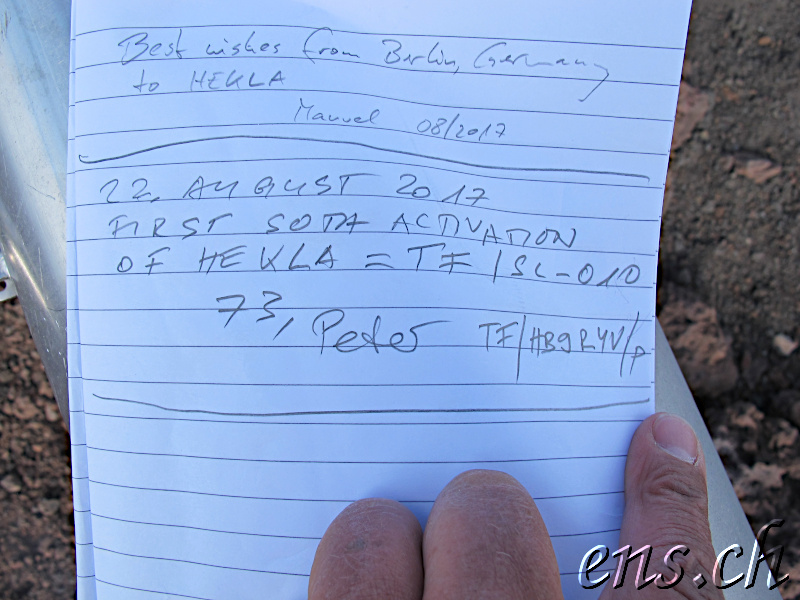 Best wishes from Berlin, Germany
to HEKLA
Manuel 08/2017
22. AUGUST 2017
FIRST SOTA ACTIVATION
OF HEKLA = TF/SL-010
73, Peter TF/HB9RYV/P
ens.ch